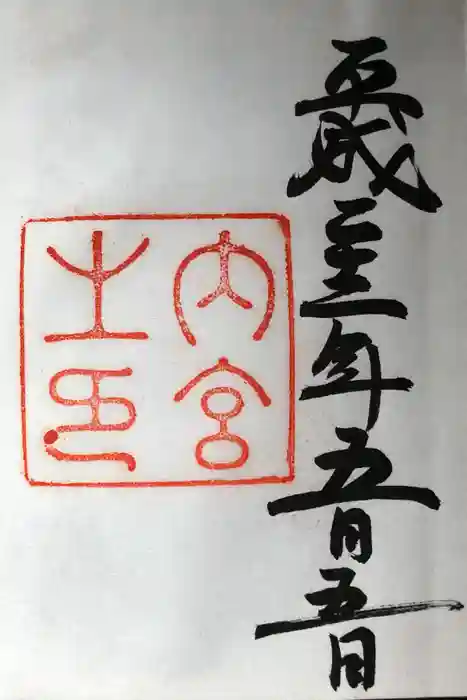 平成二十二年五月五日
内宮之印